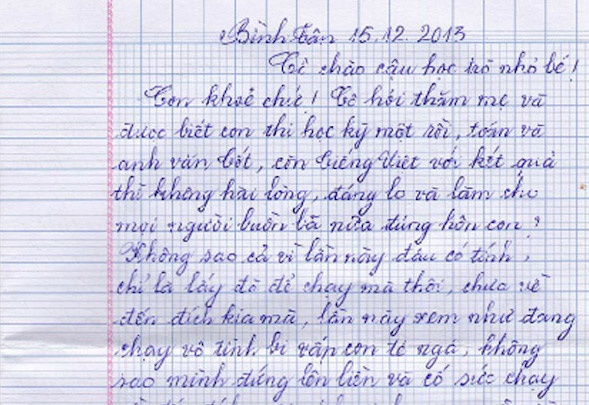 Bình Tân 15.12.2013
Cô chào cậu học trò nhỏ bé!
Con khoẻ chứ! Cô hỏi thăm mẹ và
được biết con thi học kỳ một rồi, toán và
anh văn tốt, còn tiếng Việt với kết quả
thì không hài lòng, đáng lo và làm cho
mọi người buồn bã nữa đúng hôn con?
Không sao cả vì lần này đâu có tính,
chỉ là lấy đà để chạy mà thôi, chưa về
đến đích kia mà, lần này xem như đang
chạy vô tình bị vấp con té ngã, không
sao mình đứng lên liền và cố sức chạy